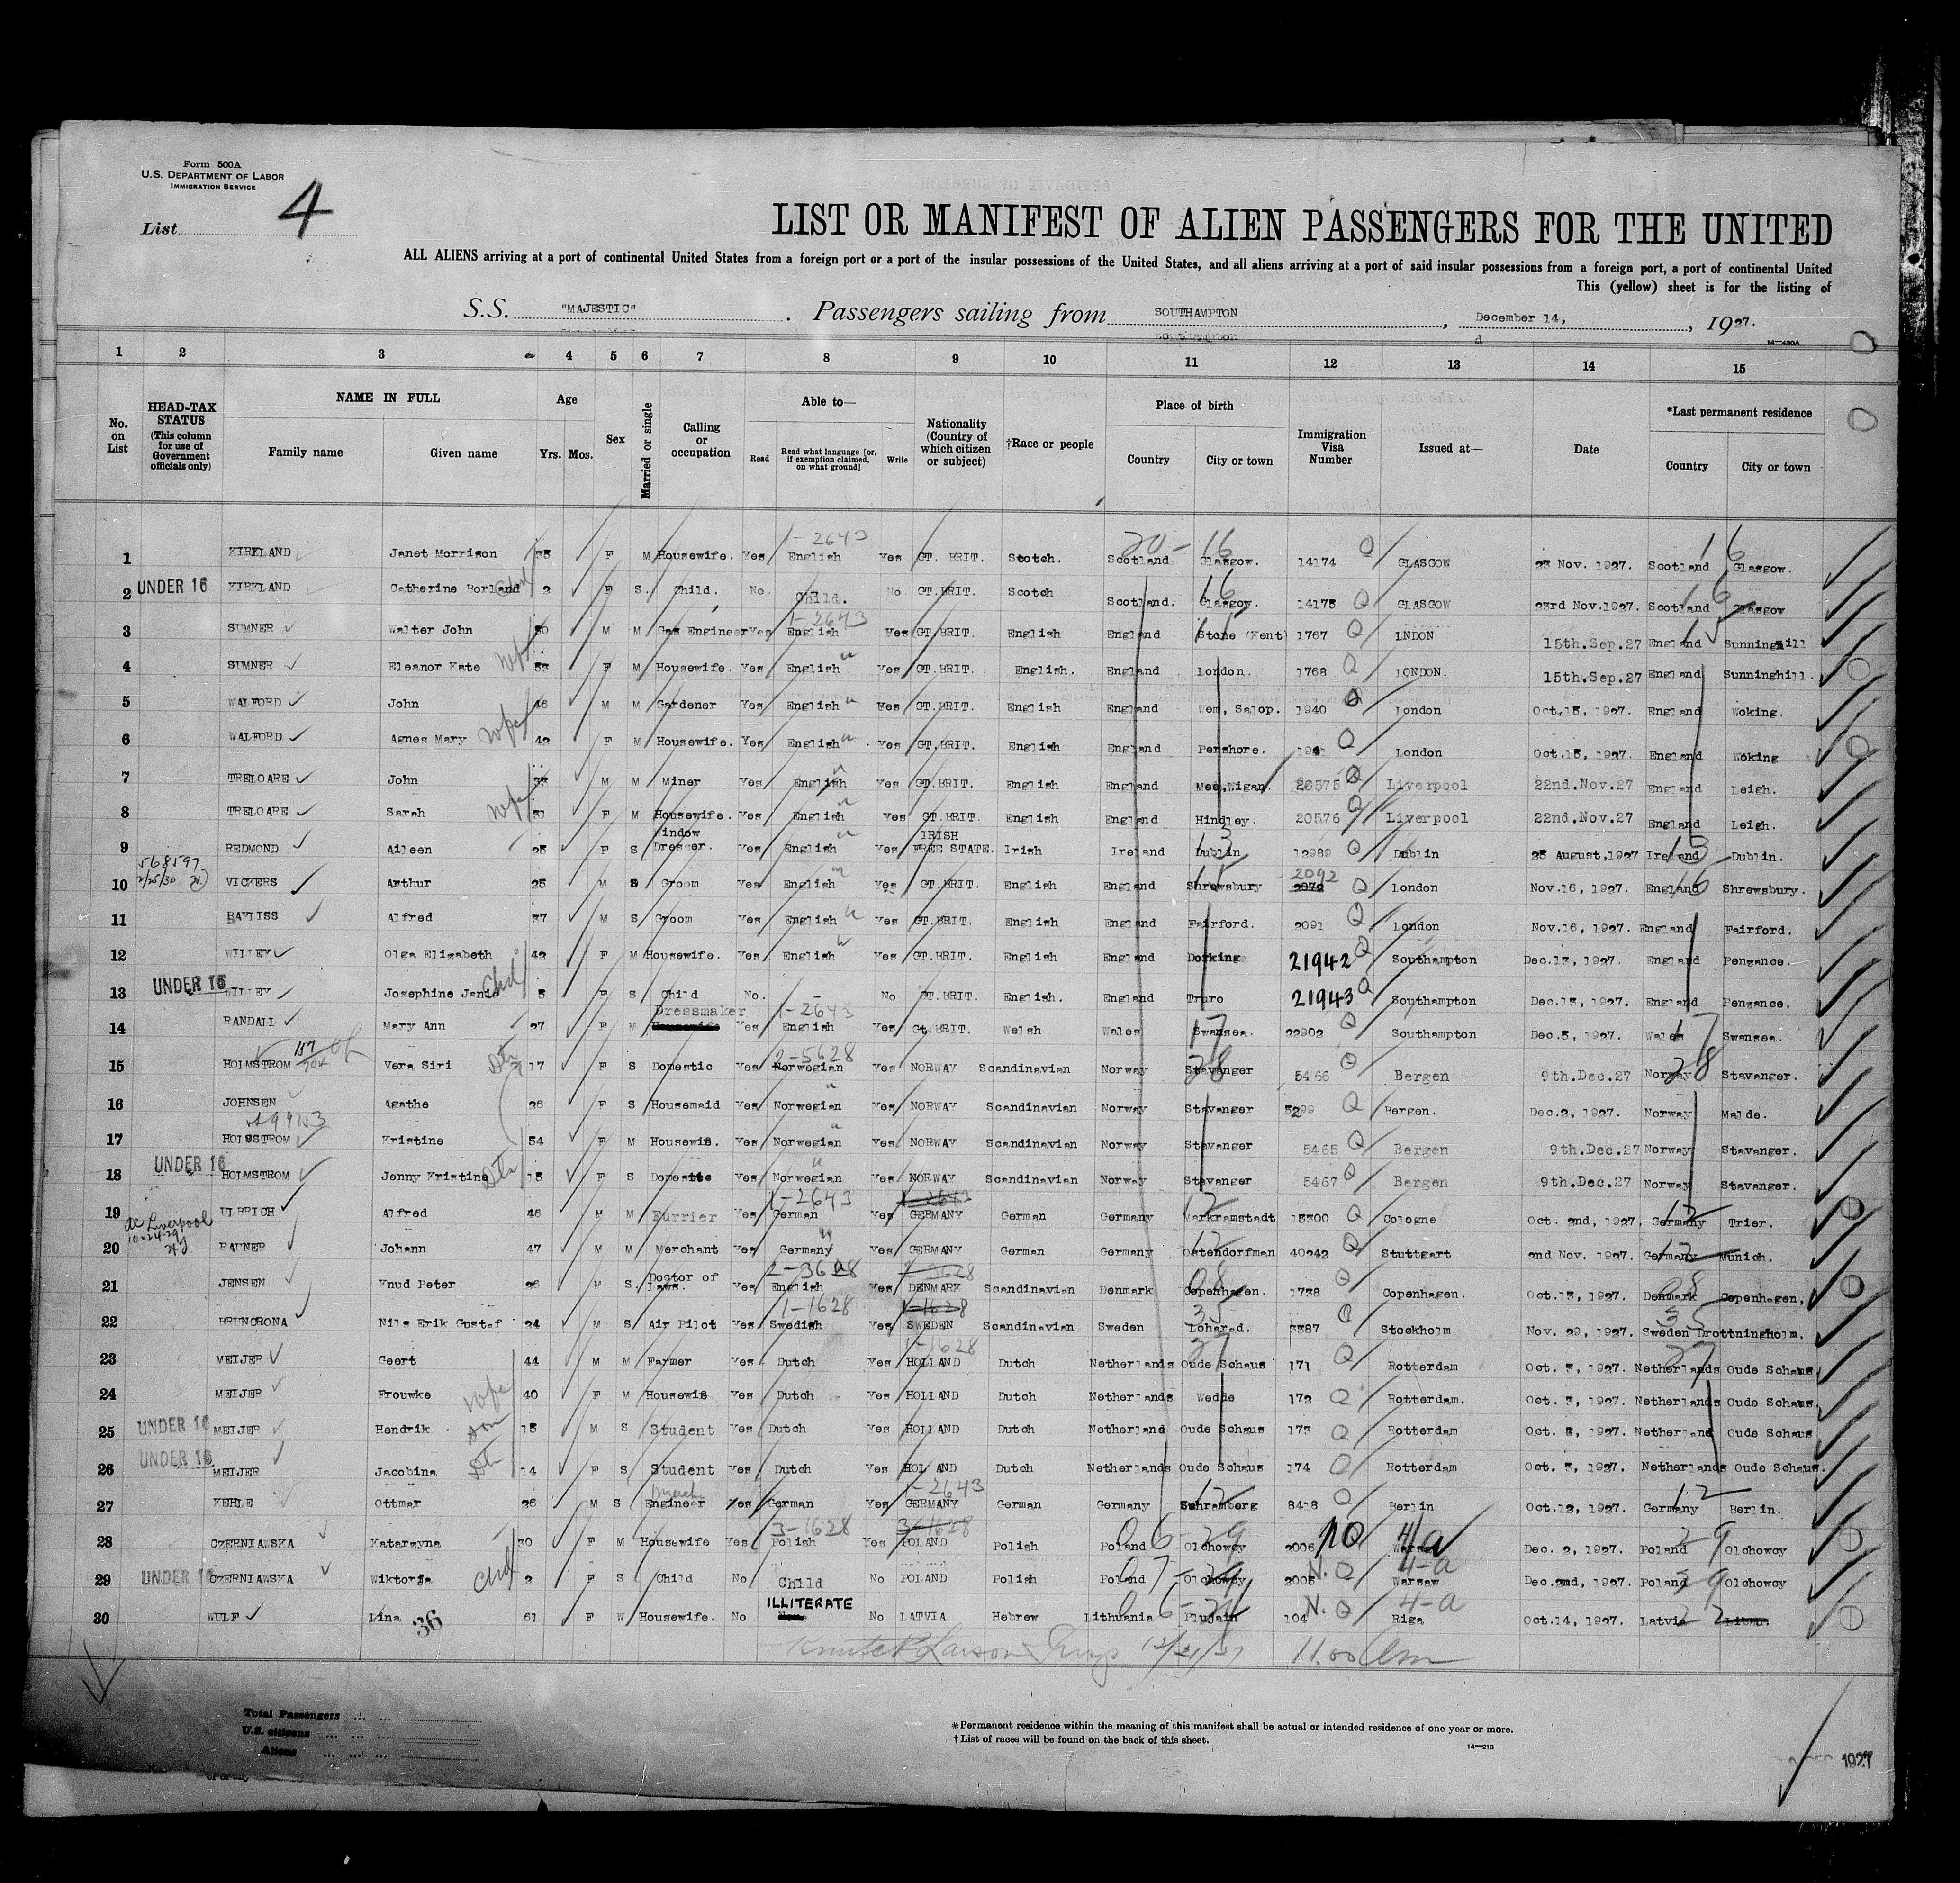 Form 500A
U.S. DEPARTMENT OF LABOR
IMMIGRATION SERVICE
List 4
LIST OR MANIFEST OF ALIEN PASSENGERS FOR THE UNITED
ALL ALIENS arriving at a port of continental United States from a foreign port or a port of the insular possessions of the United States, and all aliens arriving at a port of said insular possessions from a foreign port, a port of continental United
This (yellow) sheet is for the listing of
S.S. "MAJESTIC" . Passengers sailing from SOUTHAMPTON , December 14, , 1927.
14-430A
1 2 3 4 5 6 7 8 9 10 11 12 13 14 15
No. on List
HEAD-TAX STATUS (This column for use of Government officials only)
NAME IN FULL
Family name Given name
Age
Yrs. Mos.
Sex
Married or single
Calling or occupation
Able to—
Read Read what language [or, if exemption claimed, on what ground] Write
Nationality (Country of which citizen or subject)
†Race or people
Place of birth
Country City or town
Immigration Visa Number
Issued at—
Date
*Last permanent residence
Country City or town
1-2643 20-16 16
1 KIRKLAND Janet Morrison 35 F M Housewife. Yes English Yes GT. BRIT. Scotch. Scotland Glasgow. 14174 Q GLASGOW 23 Nov. 1927. Scotland Glasgow.
2 UNDER 16 KIRKLAND Catherine Borland 2 F S. Child. No. Child. No. GT.BRIT. Scotch Scotland. Glasgow. 14175 Q GLASGOW 23rd Nov.1927. Scotland Glasgow
1-2643
3 SUMNER Walter John 50 M M Gas Engineer Yes English Yes GT.BRIT. English England Stone (Kent) 1767 Q LNDON 15th.Sep.27 England Sunninghill
4 SUMNER Eleanor Kate 53 F M Housewife. Yes English Yes GT.BRIT. English. England London. 1768 Q LONDON. 15th.Sep.27 England Sunninghill.
5 WALFORD John 46 M M Gardener Yes English Yes GT.BRIT. English England Wem, Salop. 1940 London Oct.15, 1927. England Woking.
6 WALFORD Agnes Mary wife 42 F M Housewife. Yes English Yes GT.BRIT. English England Pershore. Q London Oct.15, 1927. England Woking
7 TRELOARE John 33 M M Miner Yes English Yes GT.BRIT. English England 20575 Q Liverpool 22nd.Nov.27 England Leigh.
8 TRELOARE Sarah wife 31 F M Housewife. Yes English Yes GT.BRIT. English England Hindley. 20576 Q Liverpool 22nd.Nov.27 England Leigh.
9 REDMOND Aileen 25 F S Window Dresser. Yes English Yes IRISH FREE STATE. Irish Ireland Dublin 12989 Q Dublin 25 August,1927 Ireland Dublin.
568597
2/25/30
10 VICKERS Arthur 25 M S Groom Yes English Yes GT.BRIT. English England Shrewsbury 2092 Q London Nov.16, 1927. England Shrewsbury.
11 BAYLISS Alfred 37 M S Groom Yes English Yes GT.BRIT. English England Fairford. 2091 Q London Nov.16, 1927. England Fairford.
12 WILLEY Olga Elizabeth 42 F M Housewife. Yes English Yes GT.BRIT. English England Dorking 21942 Q Southampton Dec.13, 1927. England Penzance.
13 UNDER 16 WILLEY Josephine Janie Chd 5 F S Child No. - No GT.BRIT. English. England Truro 21943 Q Southampton Dec.13, 1927. England Penzance.
14 RANDALL Mary Ann 27 F M Dressmaker Yes 1-2643 English Yes Gt.BRIT. Welsh Wales Swansea. 22902 Q Southampton Dec.5, 1927. Wales Swansea.
15 HOLMSTROM Vera Siri 17 F S Domestic Yes 2-5628 Norwegian Yes NORWAY Scandinavian Norway Stavanger 5466 Q Bergen 9th.Dec.27 Norway Stavanger.
16 JOHNSEN Agathe 26 F S Housemaid Yes Norwegian Yes NORWAY Scandinavian Norway Stavanger 5299 Q Bergen. Dec.2, 1927. Norway Malde.
17 HOLSSTROM Kristine 54 F M Housewife. Yes Norwegian Yes NORWAY Scandinavian Norway Stavanger 5465 Q Bergen 9th.Dec.27 Norway Stavanger.
18 UNDER 16 HOLMSTROM Jenny Kristine 15 F S Domestic Yes Norwegian Yes NORWAY Scandinavian Norway Stavanger 5467 Q Bergen 9th.Dec.27 Norway Stavanger.
1-2643
19 ULBRICH Alfred 46 M M Furrier Yes German Yes GERMANY German Germany Markramstadt 15300 Q Cologne Oct. 2nd, 1927. Germany Trier.
20 RAUNER Johann 47 M M Merchant Yes Germany Yes GERMANY German Germany Ostendorfman 40242 Q Stuttgart 2nd Nov. 1927. Germany Munich.
21 JENSEN Knud Peter 26 M S. Doctor of Laws. Yes English Yes DENMARK Scandinavian Denmark Copenhagen. 1738 Q Copenhagen. Oct.13, 1927. Denmark Copenhagen.
1-1628
22 BRUNCRONA Nils Erik Gustaf 24 M S Air Pilot Yes Swedish Yes SWEDEN Scandinavian Sweden Loharad. 3387 Q Stockholm Nov. 29, 1927. Sweden Drottningholm.
1-1628
23 MEIJER Geert 44 M M Farmer Yes Dutch Yes HOLLAND Dutch Netherlands Oude Schaus 171 Q Rotterdam Oct. 3, 1927. Netherlands Oude Schaus.
24 MEIJER Frouwke wife 40 F M Housewife Yes Dutch Yes HOLLAND Dutch Netherlands Wedde 172 Q Rotterdam. Oct. 3, 1927. Netherlands Oude Schaus.
25 UNDER 16 MEIJER Hendrik son 15 M S Student Yes Dutch Yes HOLLAND Dutch Netherland Oude Schaus 173 Q Rotterdam Oct. 3, 1927. Netherland Oude Schaus
26 UNDER 16 MEIJER Jacobina 14 F S Student Yes Dutch Yes HOLLAND Dutch Netherlands Oude Schaus 174 Q Rotterdam Oct. 3, 1927. Netherlands Oude Schaus.
1-2643
27 KEHLE Ottmar 26 M S Engineer Yes German Yes GERMANY German Germany Schramberg Q Berlin Oct.12, 1927. Germany Berlin.
3-1628
28 CZERNIAWSKA Katarzyna 30 F M Housewife Yes Polish Yes POLAND Polish Poland Olchowcy 2006 Warsaw Dec. 2, 1927. Poland Olchowcy
29 UNDER 16 CZERNIAWSKA Wiktorja Chd 2 F S Child No Child No POLAND Polish Poland Olchowcy 2005 N.Q 4-a Warsaw Dec.2nd, 1927. Poland Olchowcy
30 WULF Lina 61 F W Housewife. No ILLITERATE No LATVIA Hebrew Lithuania 104 N.Q 4-a Riga Oct.14, 1927. Latvia
36
Knute P Larson 12/21/27 11.00
Total Passengers
U.S. citizens
Aliens
*Permanent residence within the meaning of this manifest shall be actual or intended residence of one year or more.
†List of races will be found on the back of this sheet.
14-213
1927